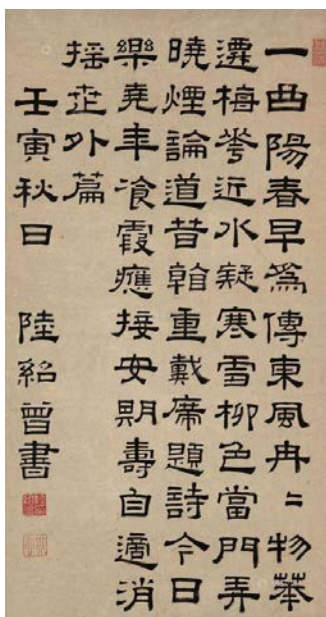 一曲陽春早爲傳東風冉〻物華
遷梅花近水疑寒雪柳色當門弄
曉煙論道昔重戴席題詩今日
樂堯年飡霞應接安期壽自適消
搖莊外篇
壬寅秋日 陸紹曾書